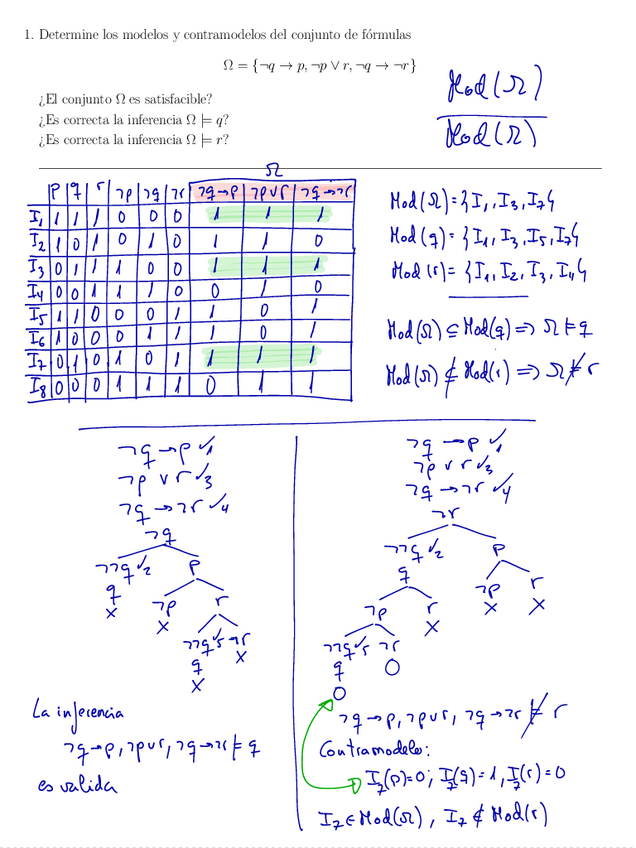 1. Determine los modelos y contramodelos del conjunto de fórmulas
Ω = {¬q → p, ¬p ∨ r, ¬q → ¬r}
¿El conjunto Ω es satisfacible?
¿Es correcta la inferencia Ω ⊨ q?
¿Es correcta la inferencia Ω ⊨ r?
Mod(Ω)
Mod(Ω)
Ω
p q r ¬p ¬q ¬r ¬q→p ¬p∨r ¬q→¬r
I₁ 1 1 1 0 0 0 1 1 1
I₂ 1 0 1 0 1 0 1 1 0
I₃ 0 1 1 1 0 0 1 1 1
I₄ 0 0 1 1 1 0 0 1 0
I₅ 1 1 0 0 0 1 1 0 1
I₆ 1 0 0 0 1 1 1 0 1
I₇ 0 1 0 1 0 1 1 1 1
I₈ 0 0 0 1 1 1 0 1 1
Mod(Ω) = {I₁, I₃, I₇}
Mod(q) = {I₁, I₃, I₅, I₇}
Mod(r) = {I₁, I₂, I₃, I₄}
Mod(Ω) ⊆ Mod(q) ⟹ Ω ⊨ q
Mod(Ω) ⊄ Mod(r) ⟹ Ω ⊭ r
¬q → p ✓1
¬p ∨ r ✓3
¬q → ¬r ✓4
¬q
¬¬q ✓2 p
q ¬p r
x x
¬¬q ✓5 ¬r
q x
x
La inferencia
¬q→p, ¬p∨r, ¬q→¬r ⊨ q
es valida
¬q → p ✓1
¬p ∨ r ✓3
¬q → ¬r ✓4
¬r
¬¬q ✓2 p
q ¬p r
x x
¬p r
x
¬¬q ✓5 ¬r
q O
O
¬q→p, ¬p∨r, ¬q→¬r ⊭ r
Contramodelo:
I₇(p)=0; I₇(q)=1, I₇(r)=0
I₇ ∈ Mod(Ω), I₇ ∉ Mod(r)